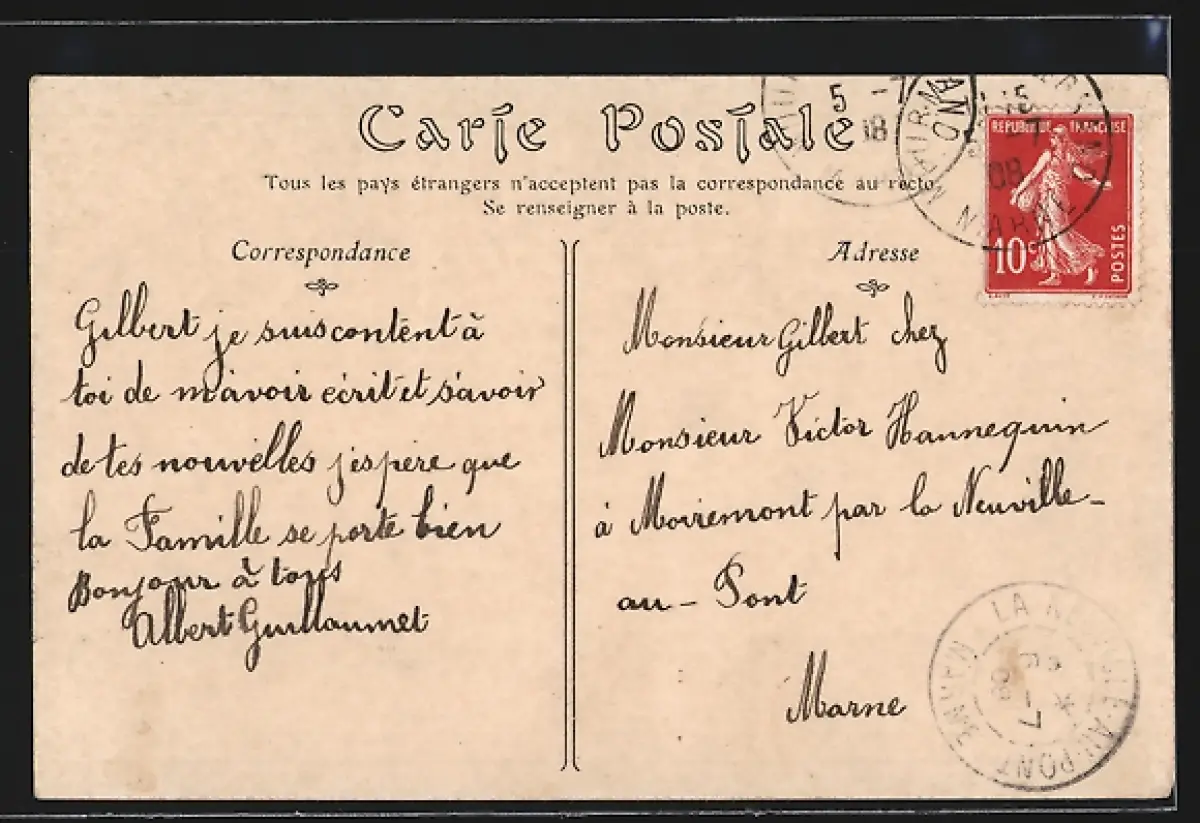 Carte Postale
Tous les pays étrangers n'acceptent pas la correspondance au recto.
Se renseigner à la poste.
Correspondance
Gilbert je suis contént à
toi de m'avoir écrit et s'avoir
de tes nouvelles j'espère que
la Famille se porte bien
Bonjour à tous
Albert Guillaumet
Adresse
Monsieur Gilbert chez
Monsieur Victor Hannequin
à Moiremont par la Neuville-
au-Pont
Marne
REPUBLIQUE FRANÇAISE
10c
POSTES
5 -7
08
MARNE
LA NEUVILLE-AU-PONT
MARNE
6 -7
08